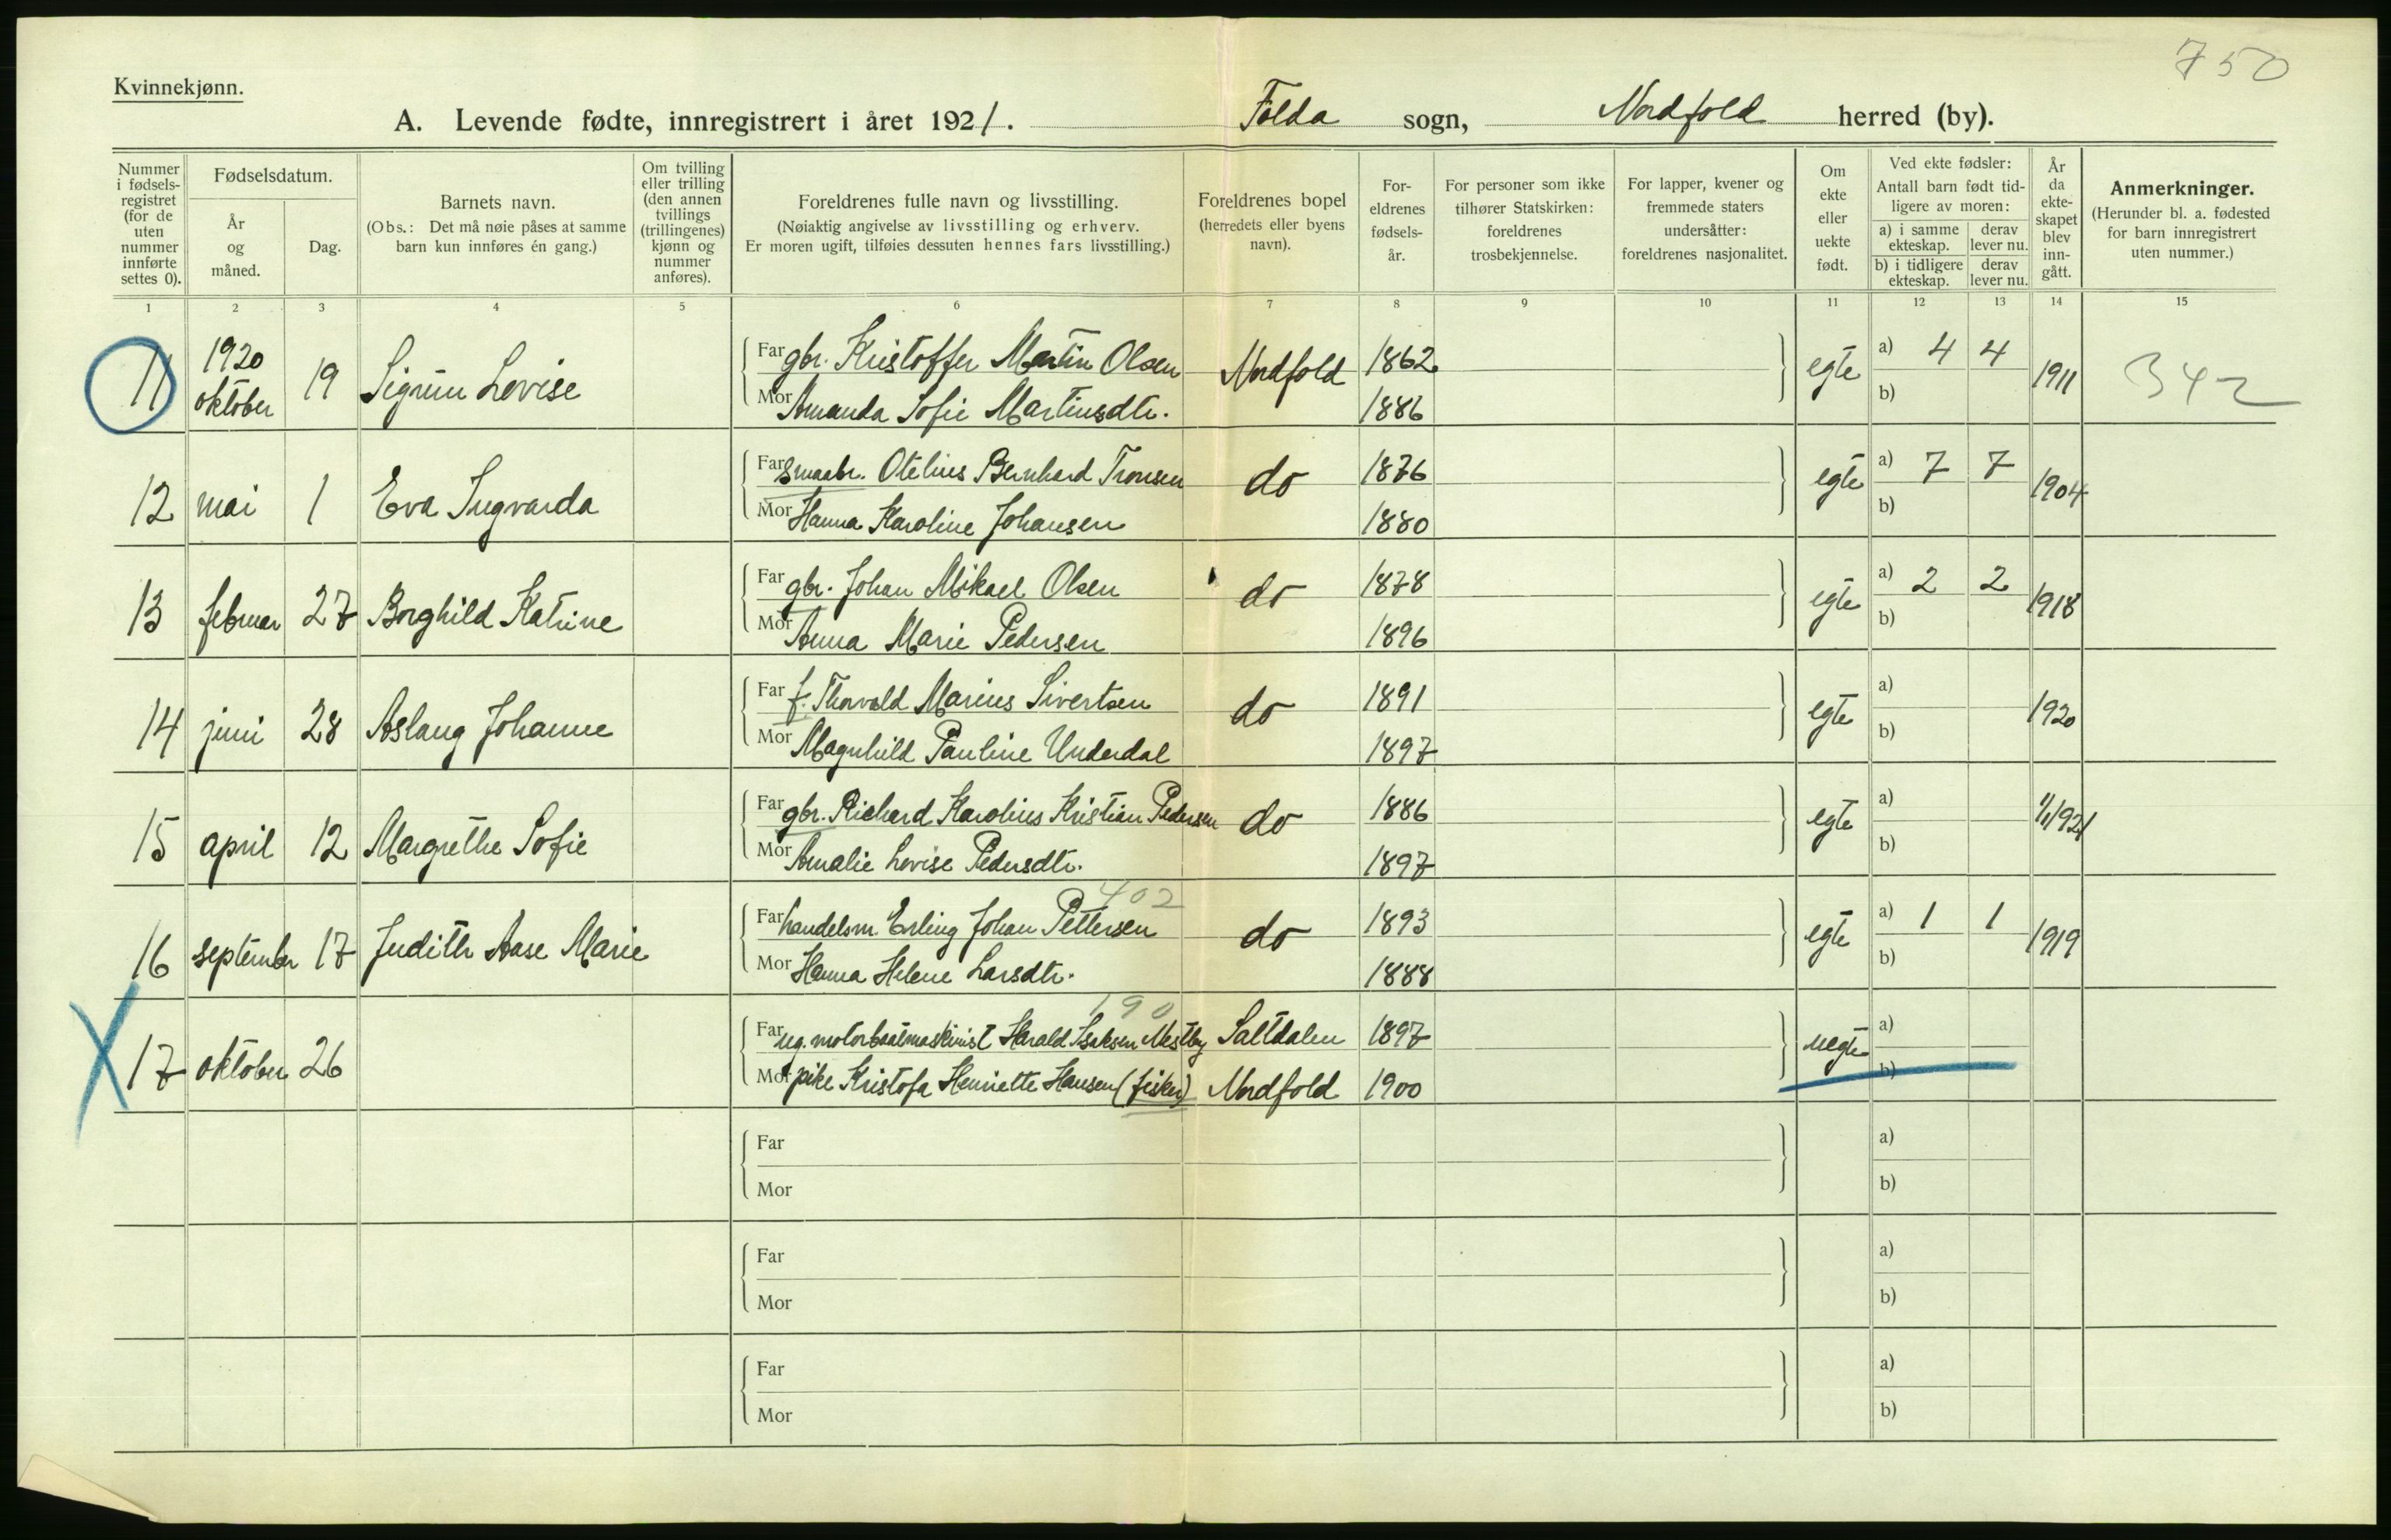 750
Kvinnekjønn.
A. Levende fødte, innregistrert i året 1921. Folda sogn, Nordfold herred (by).
Nummer i fødselsregistret (for de uten nummer innførte settes 0).
Fødselsdatum.
År og måned.
Dag.
Barnets navn.
(Obs.: Det må nøie påses at samme barn kun innføres én gang.)
Om tvilling eller trilling (den annen tvillings (trillingenes) kjønn og nummer anføres).
Foreldrenes fulle navn og livsstilling.
(Nøiaktig angivelse av livsstilling og erhverv.
Er moren ugift, tilføies dessuten hennes fars livsstilling.)
Foreldrenes bopel
(herredets eller byens navn).
Foreldrenes fødselsår.
For personer som ikke tilhører Statskirken: foreldrenes trosbekjennelse.
For lapper, kvener og fremmede staters undersåtter: foreldrenes nasjonalitet.
Om ekte eller uekte født.
Ved ekte fødsler:
Antall barn født tidligere av moren:
a) i samme ekteskap.
derav lever nu.
b) i tidligere ekteskap.
derav lever nu.
År da ekteskapet blev inngått.
Anmerkninger.
(Herunder bl. a. fødested for barn innregistrert uten nummer.)
1 2 3 4 5 6 7 8 9 10 11 12 13 14 15
11 1920 oktober 19 Sigrun Lovise Far gbr. Kristoffer Martin Olsen Nordfold 1862 egte a) 4 4 1911 342
Mor Amanda Sofie Martinsdtr. 1886 b)
12 mai 1 Eva Ingvarda Far smaabr. Otelius Bernhard Tronsen do 1876 egte a) 7 7 1904
Mor Hanna Karoline Johansen 1880 b)
13 februar 27 Borghild Katrine Far gbr. Johan Mikael Olsen do 1878 egte a) 2 2 1918
Mor Anna Marie Pedersen 1896 b)
14 juni 28 Aslaug Johanne Far f. Thorvald Marius Sivertsen do 1891 egte a) 1920
Mor Magnhild Pauline Underdal 1897 b)
15 april 12 Margrethe Sofie Far gbr. Richard Karolius Kristian Pedersen do 1886 egte a) 1/1 1921
Mor Amalie Lovise Pedersdtr. 1897 b)
402
16 september 17 Judith Aase Marie Far handelsm. Erling Johan Pettersen do 1893 egte a) 1 1 1919
Mor Hanna Helene Larsdtr. 1888 b)
190
17 oktober 26 Far ug. motorbaatmaskinist Harald Isaksen Nestby Saltdalen 1897 uegte a)
Mor pike Kristofa Henriette Hansen (fisker) Nordfold 1900 b)
Far a)
Mor b)
Far a)
Mor b)
Far a)
Mor b)